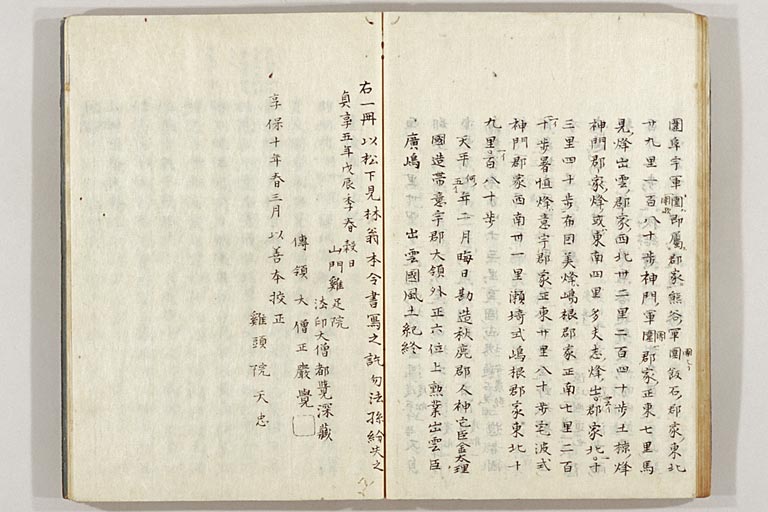 圑意宇軍團即属郡家熊谷軍團飯石郡家東北
廿九里一百八十歩神門軍團郡家正東七里馬
見烽出雲郡家西北卅二里二百四十歩土椋烽
神門郡家烽或東南四里多夫志烽出郡家北十
三里四十歩布自美烽嶋根郡家正南七里二百
十歩暑恒烽意宇郡家正東廿里八十歩宅波式
神門郡家西南卅一里瀬埼式嶋根郡家東北十
九里百八十歩
天平五年二月晦日勘造秋鹿郡人神宅臣金太理
國造帶意宇郡大領外正六位上勲業出雲臣
廣嶋 出雲國風土紀終
右一冊以松下見林翁本令書冩之訖句法孫給失之
貞享五年戊辰季春穀日
山門雞足院
法印大僧都覺深藏
傳領大僧正嚴覺
享保十年春三月以善本挍正
雞頭院天忠